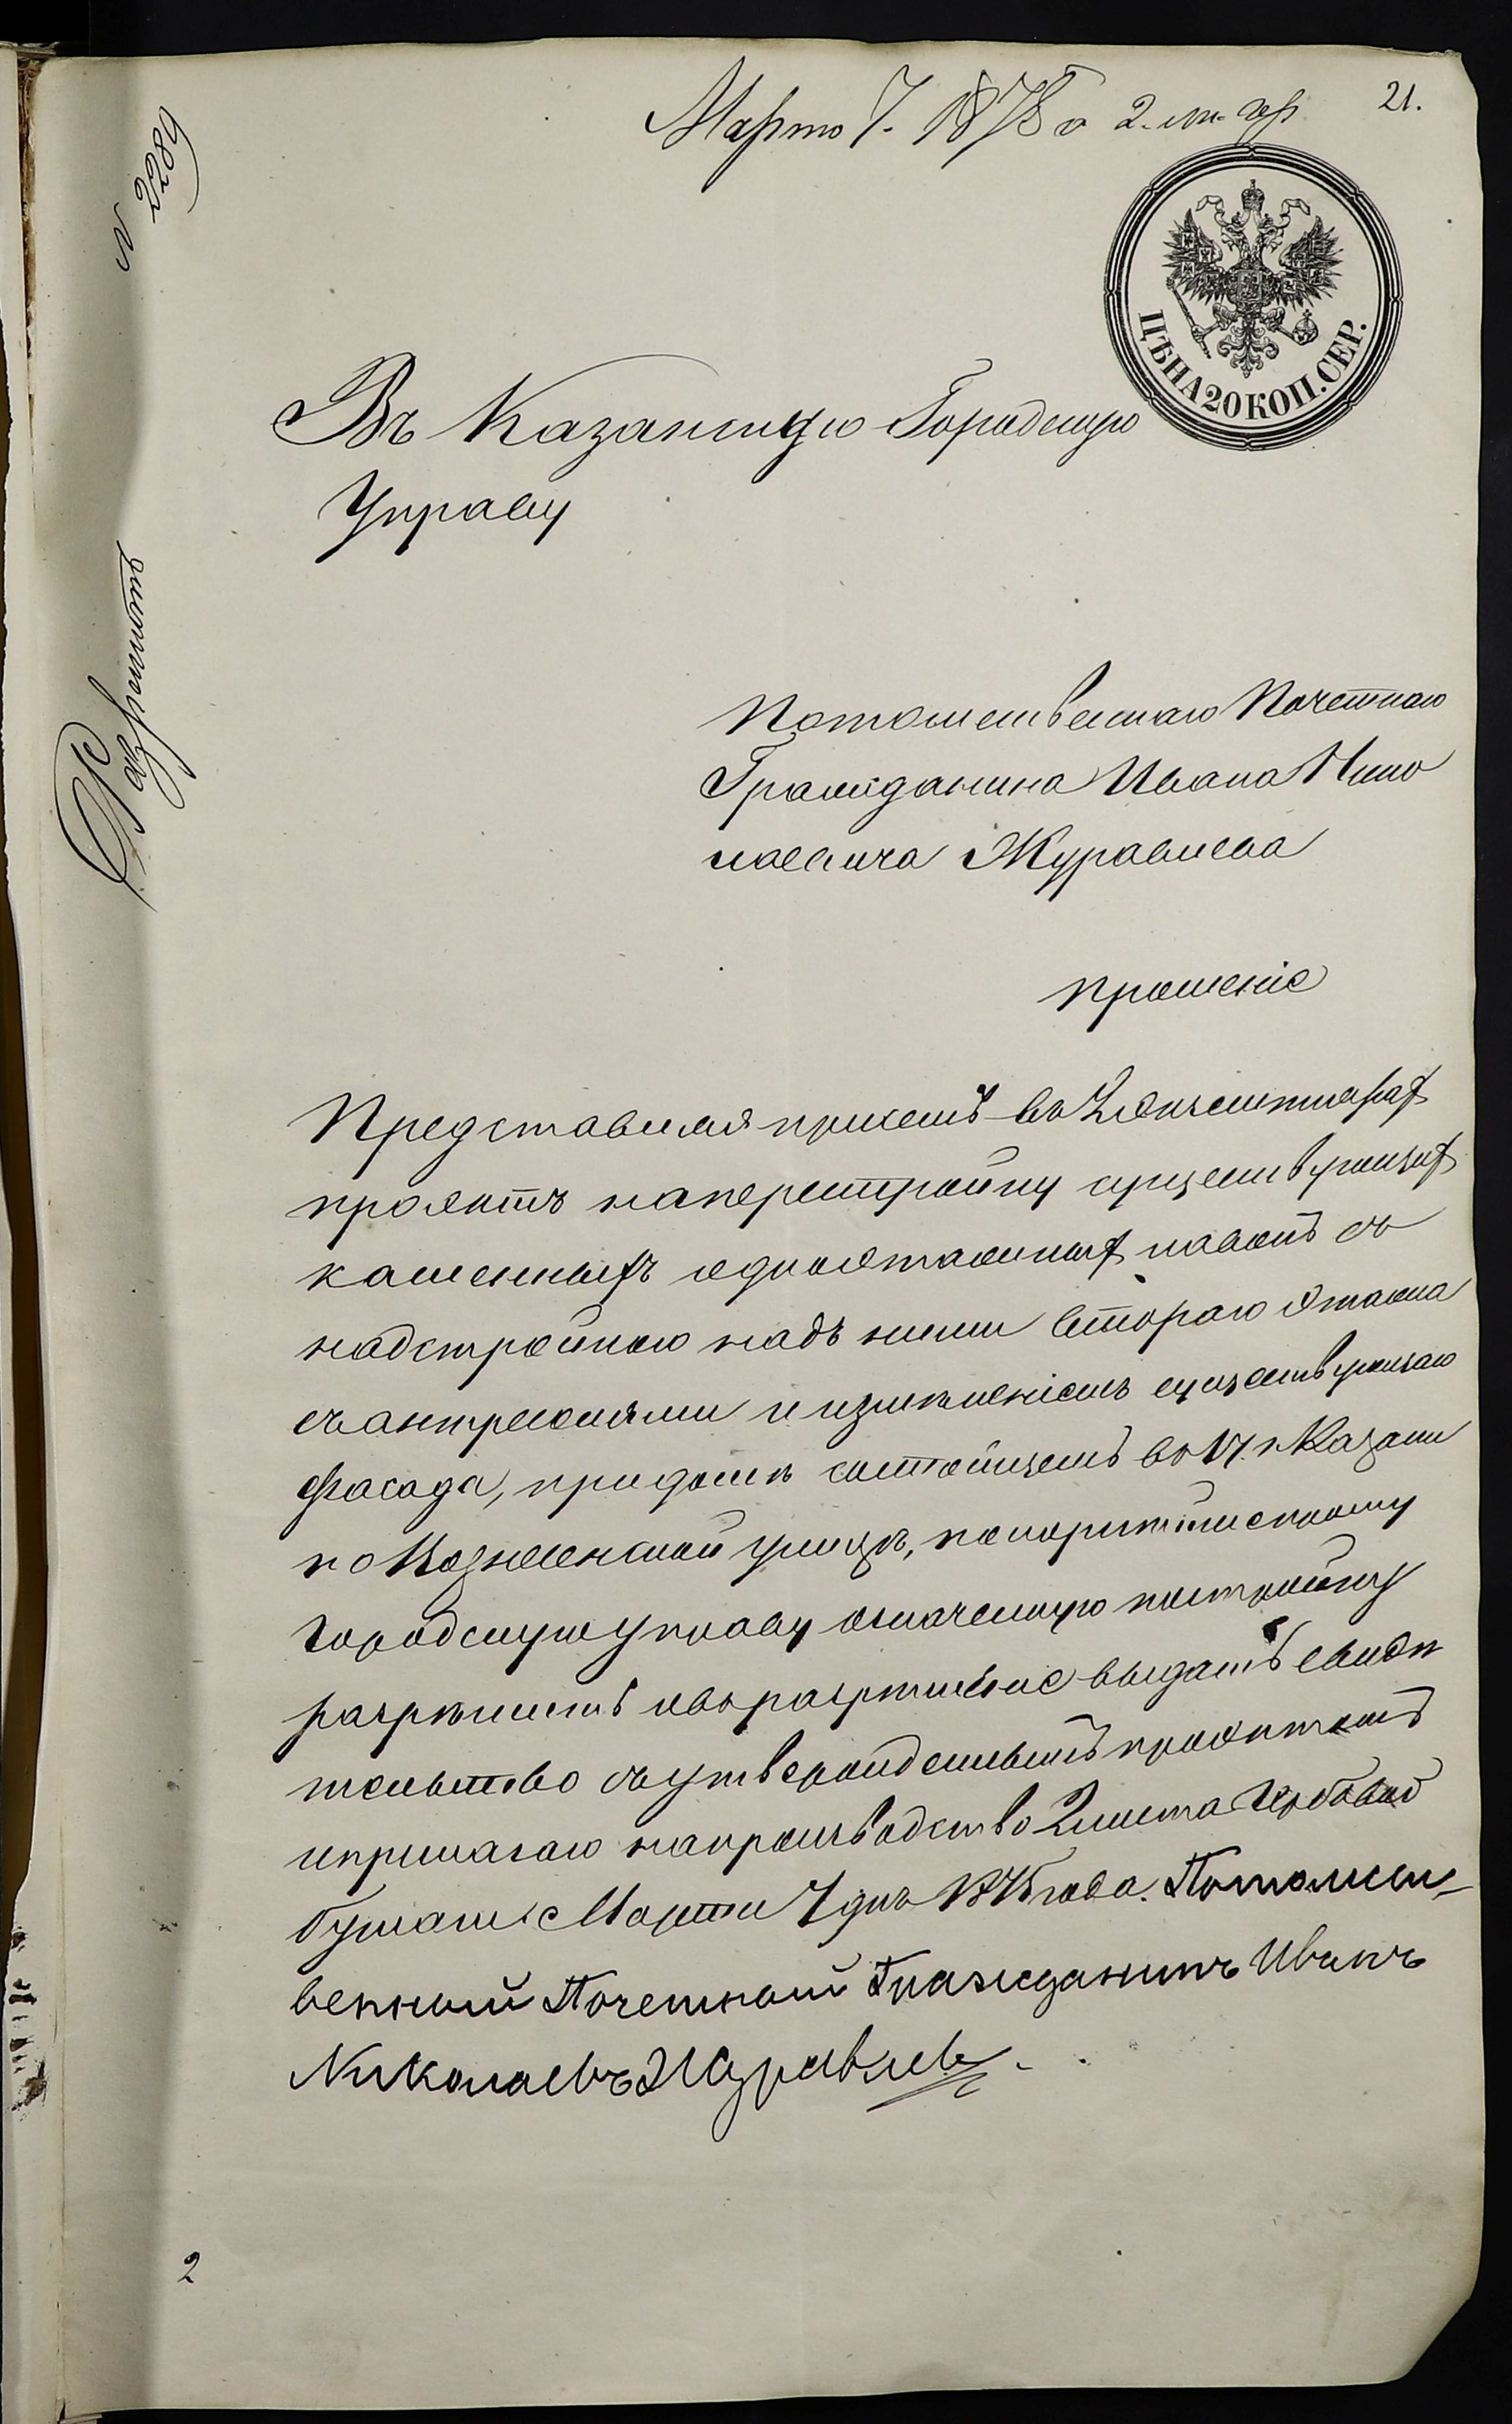 Марта 7. 1878 г 2. ли. гер.
21.
N 2289
ЦѢНА 20 КОП. СЕР.
Въ Казанскую Городскую
Управу
Разрешить
Потомственнаго Почетнаго
Гражданина Ивана Нико
лаевича Журавлева
прошеніе
Представляя при семъ въ 2 экземплярах
проэктъ на перестройку существующих
каменныхъ одноэтажных лавокъ съ
надстройкою надъ ними втораго этажа
съ антресолями и измѣненіемъ существующаго
фасада, при домѣ состоящемъ въ г. Казани
по улицѣ, покорнѣйше прошу
Городскую управу означенную постройку
разрѣшить и въ разрѣшеніе выдать свидѣ
тельство съ утвержденнымъ проэктомъ
и прилагаю на производство 2 листа Гербовой
бумаги Марта 7 дня года. Потомст-
венный Почетный Гражданинъ Иванъ
Николаевъ Журавлевъ.
2